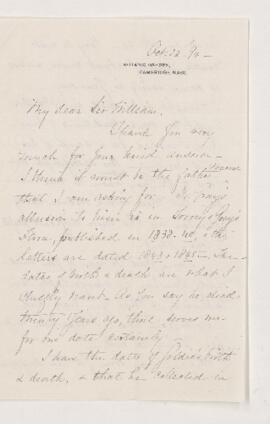 Oct. 22 '94 -
BOTANIC GARDEN,
CAMBRIDGE, MASS.
My dear Sir William.
Thank you very
much for your kind answer -
I think it must be the father
that I am asking for. Dr. Gray's
allusion to him is in Torrey & Gray's
Flora, published in 1838-40, & the
letters are dated 1843 & 1845 - The
dates of birth & death are what I
chiefly want. As you say he died
twenty years ago, that serves me
for one date certainly.
I have the dates of Goldie's birth
& death, & that he collected in